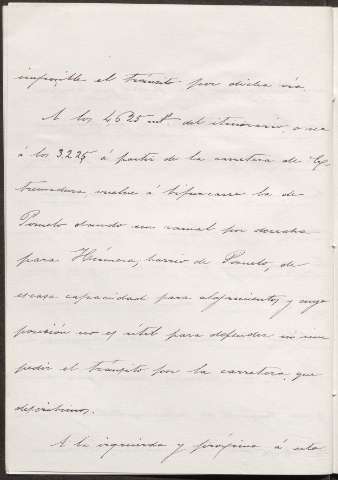 imposible el tránsito por dicha via
A los 4625 mts. del itinerario, o sea
á los 3.225 á partir de la carretera de Ex-
tremadura, vuelve á bifurcarse la de
dando un ramal por derecha
para Húmera, barrio de de
escasa capacidad para alojamientos y cuya
posición no es util para defender ni im
pedir el tránsito por la carretera que
describimos.
A la izquierda y próximo á esta